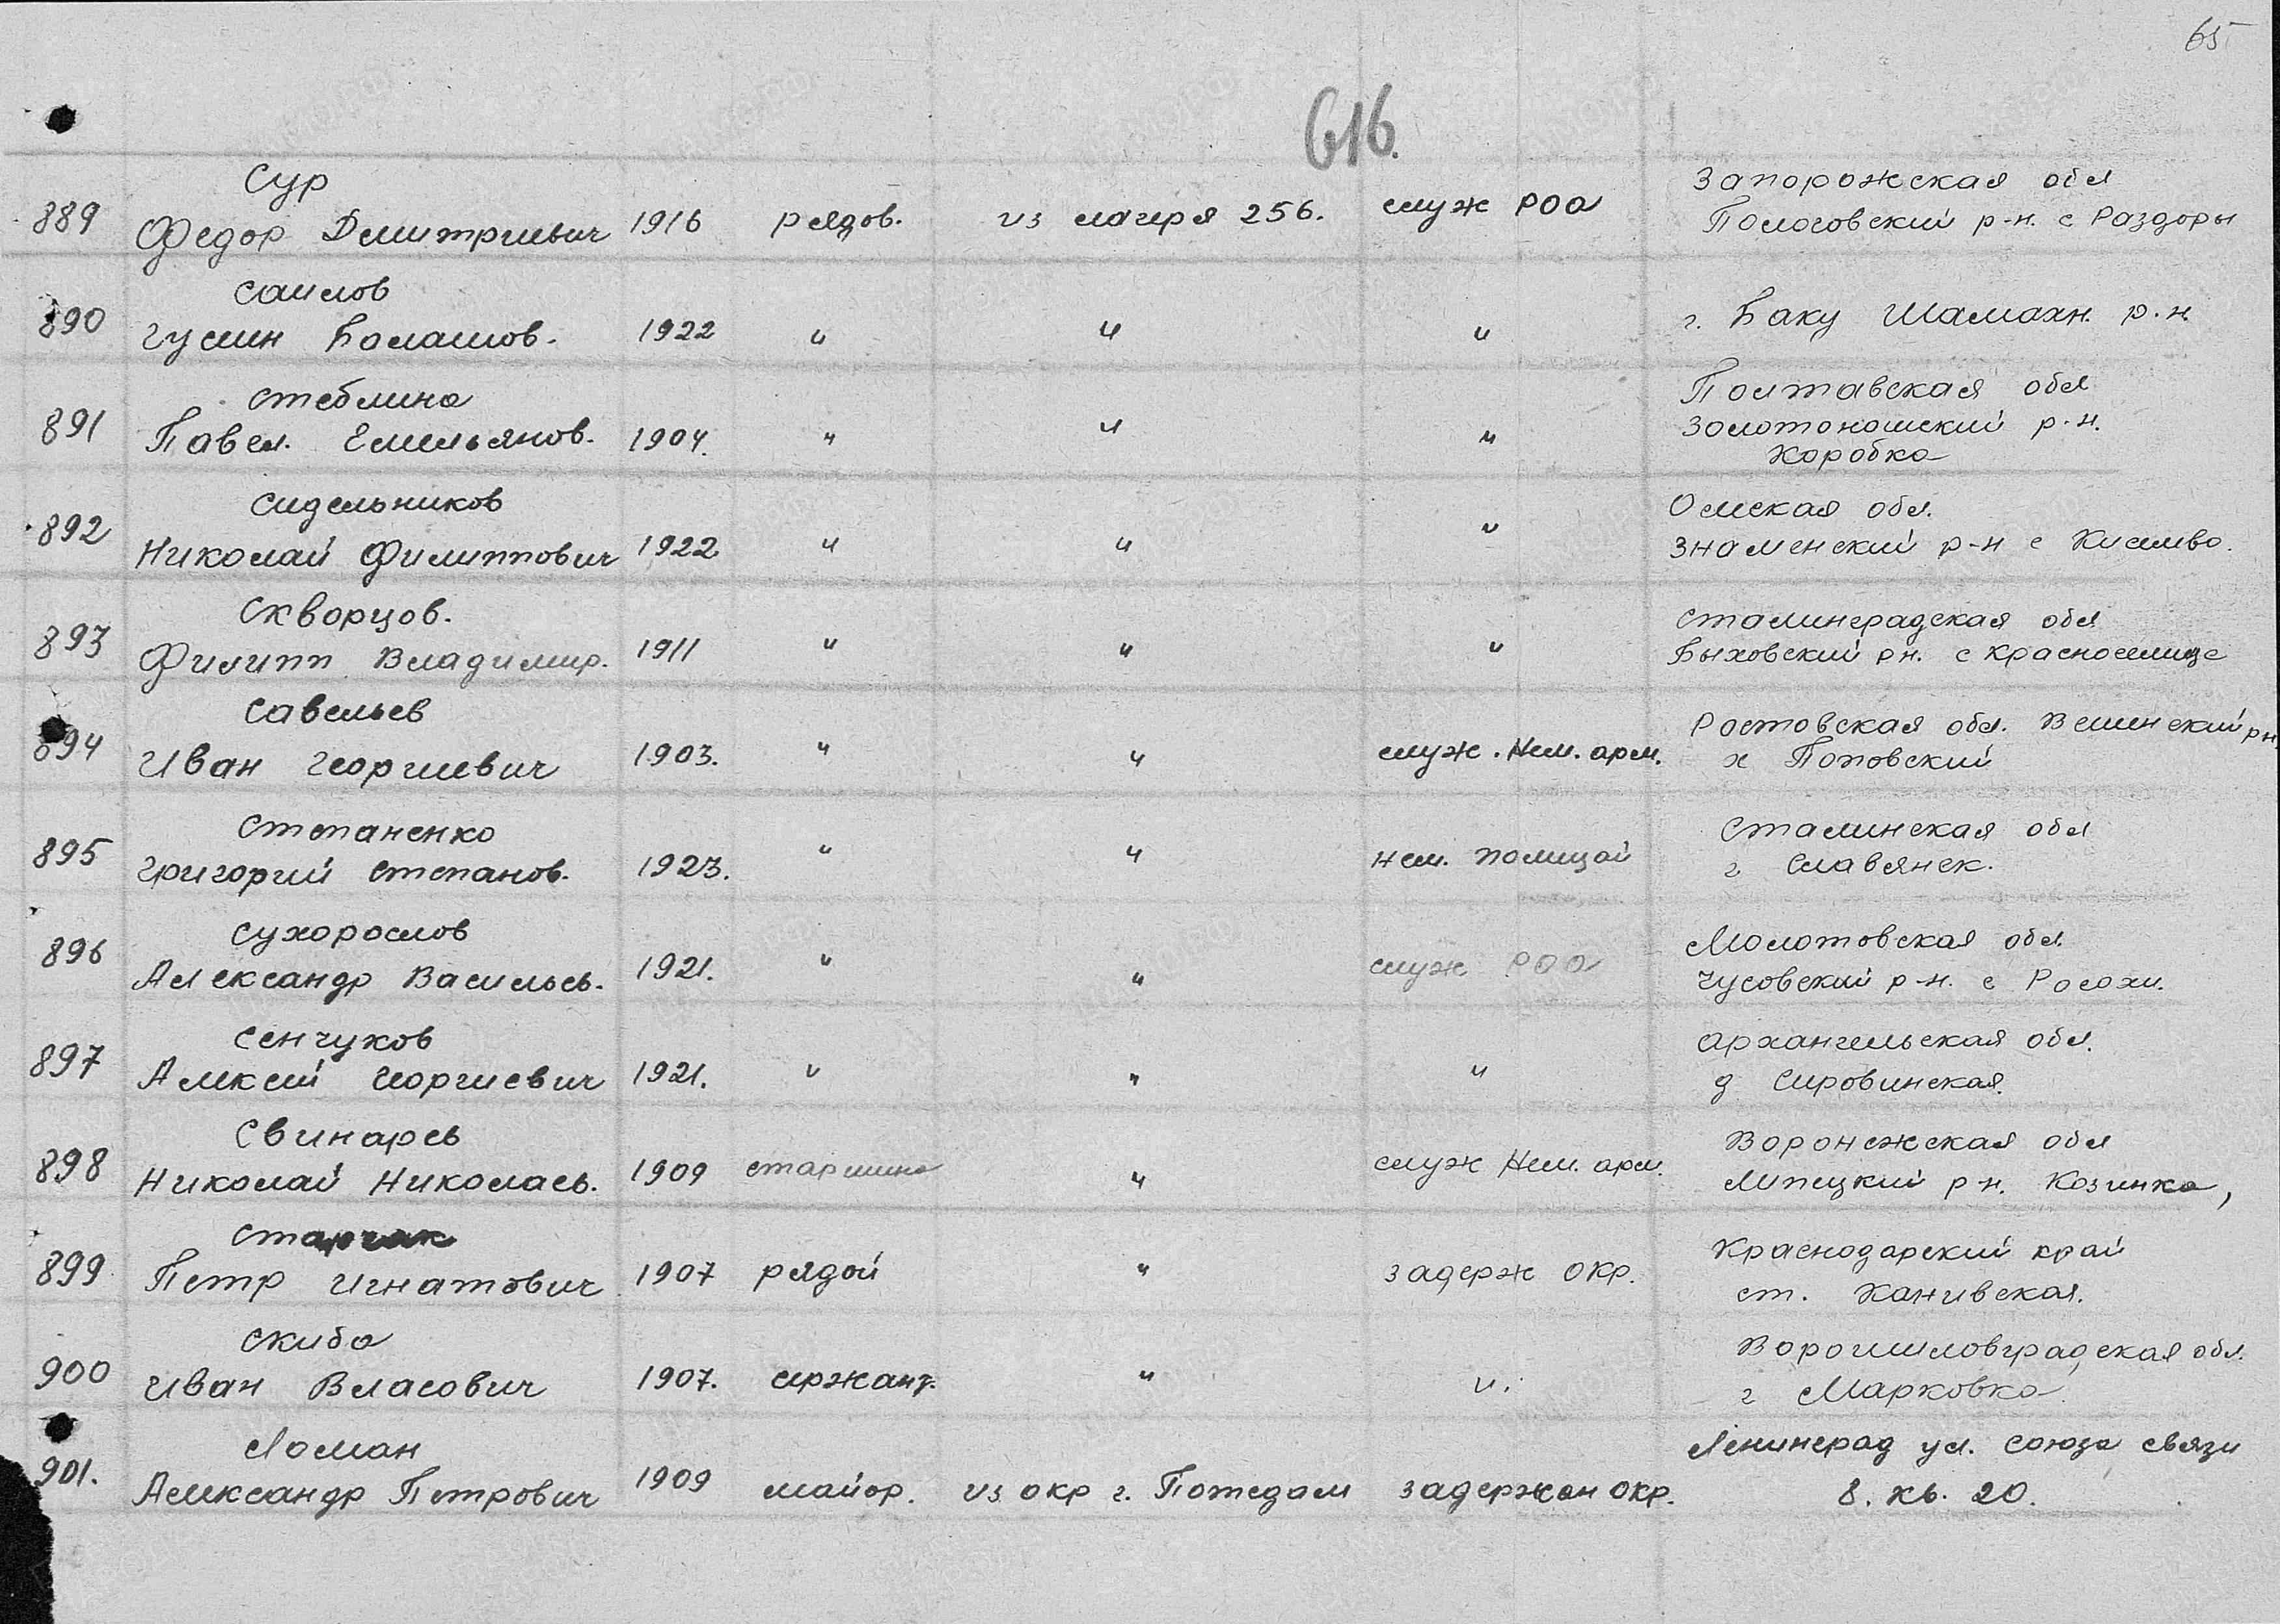 65
616.
Сур
889 Федор Дмитриевич 1916 рядов. из лагеря 256. служ РОА Запорожская обл
Пологовский р-н. с Раздоры
Саилов
890 Гусин Балашов. 1922 " " " г. Баку Шамахн. р.н.
Стеблина
891 Павел. Емельянов. 1904. " " " Полтавская обл
Золотоношский р-н.
Коробка
Сидельников
892 Николай Филиппович 1922 " " " Омская обл.
Знаменский р-н с
Скворцов.
893 Филипп Владимир. 1911 " " " Сталинградская обл
Быховский рн. с Красноселице
Савельев
894 Иван Георгиевич 1903. " " служ. Нем. арм. Ростовская обл. Вешинский рн.
х Поповский
Степаненко
895 Григорий Степанов. 1923. " " нем. полицай Сталинская обл
г Славянск.
Сухорослов
896 Александр Васильев. 1921. " " служ РОА Молотовская обл.
Чусовский р-н. с Росохи.
Сенчуков
897 Алексей Георгиевич 1921. " " " Архангельская обл.
д Сировинская.
Свинарев
898 Николай Николаев. 1909 старшина " служ Нем. арм. Воронежская обл
Липецкий р-н. Козинка,
Старчак
899 Петр Игнатович 1907 рядой " задерж окр. Краснодарский край
ст. Канивская.
Скиба
900 Иван Власович 1907. сержант. " ". Ворошиловградская обл.
г Марковка
Ломан
901. Александр Петрович 1909 майор. из окр г. Потсдам задержан окр. Ленинград ул. Союза связи
8. кв. 20.